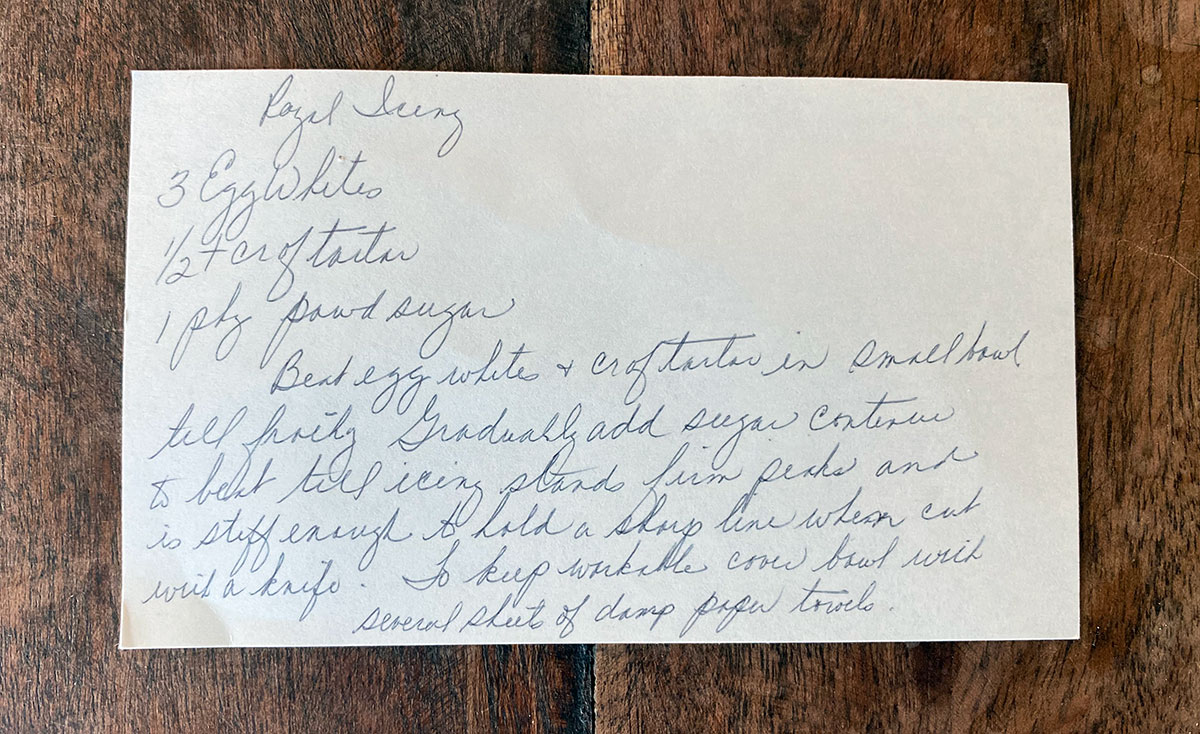 Royal Icing
3 Egg Whites
1/2 t cr of tartar
1 pkg powd sugar
Beat egg whites + cr of tartar in small bowl
till frothy Gradually add sugar continue
to beat till icing stands firm peaks and
is stiff enough to hold a sharp line when cut
with a knife. To keep workable cover bowl with
several sheets of damp paper towels.